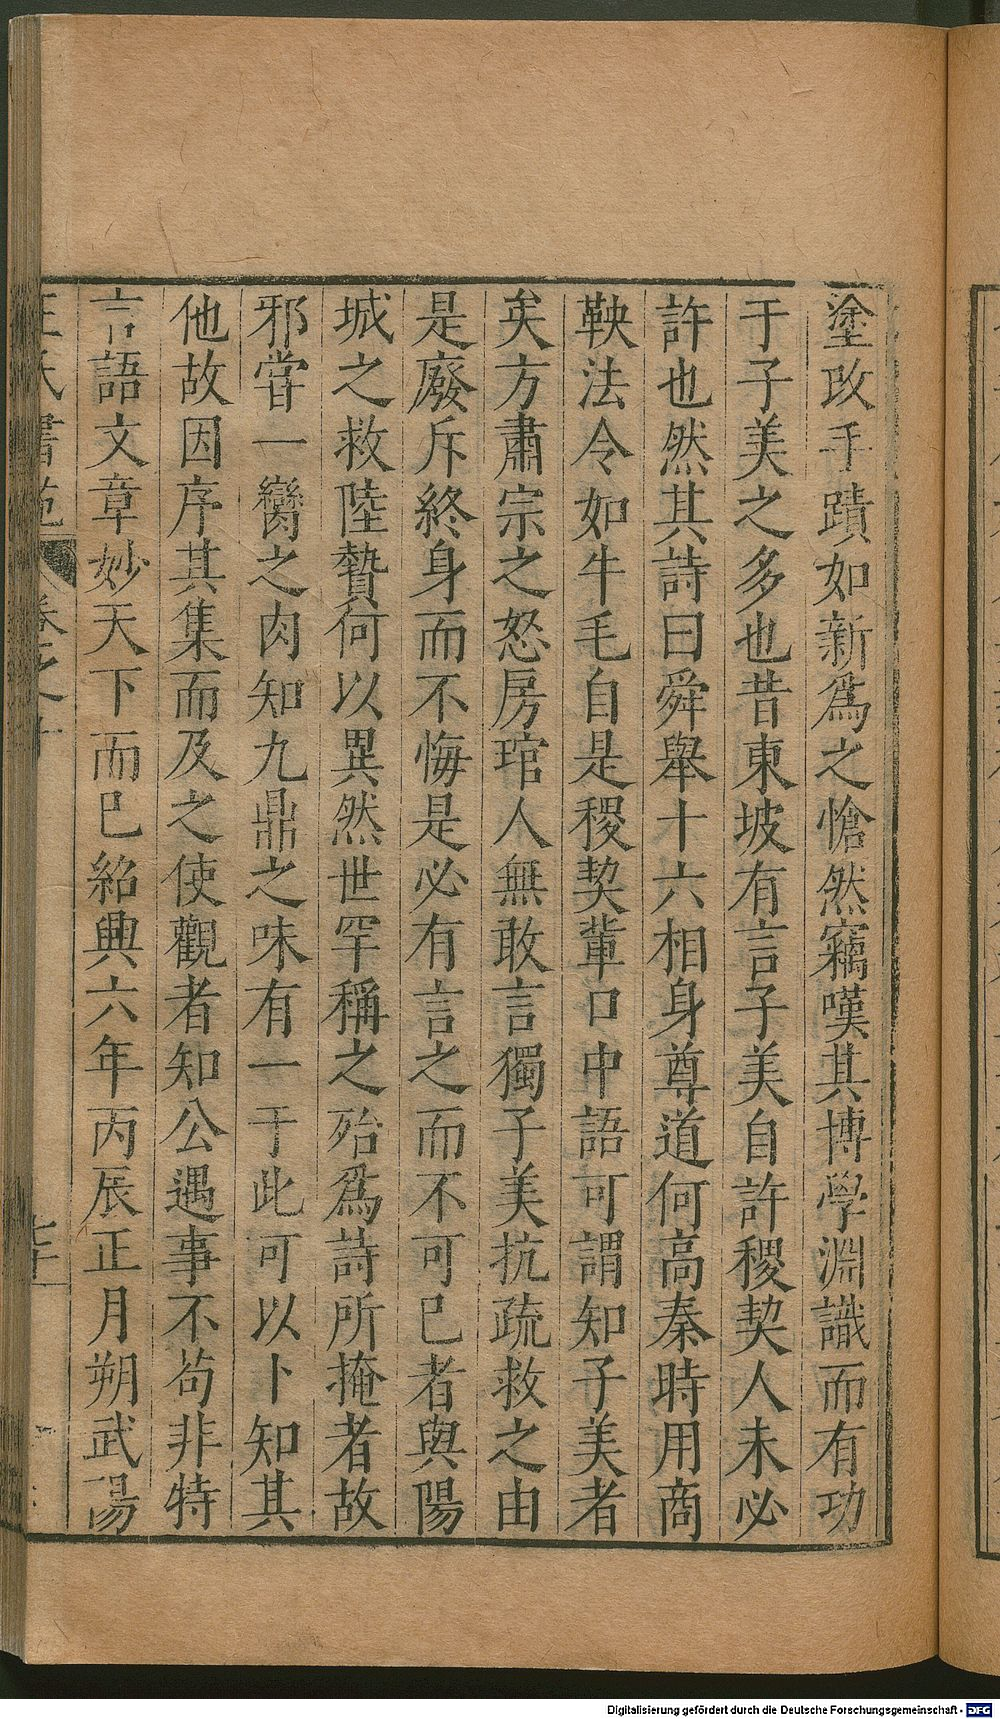 塗改手蹟如新爲之愴然竊嘆其博學淵識而有功
于子美之多也昔東坡有言子美自許稷契人未必
許也然其詩曰舜舉十六相身尊道何高秦時用商
鞅法令如牛毛自是稷契輩口中語可謂知子美者
矣方肅宗之怒房琯人無敢言獨子美抗疏救之由
是廢斥終身而不悔是必有言之而不可已者與陽
城之救陸贄何以異然世罕稱之殆爲詩所掩者故
邪嘗一臠之肉知九鼎之味有一于此可以卜知其
他故因序其集而及之使觀者知公遇事不苟非特
言語文章妙天下而已紹興六年丙辰正月朔武陽
氏書苑 卷之十
Digitalisierung gefördert durch die Deutsche Forschungsgemeinschaft - DFG